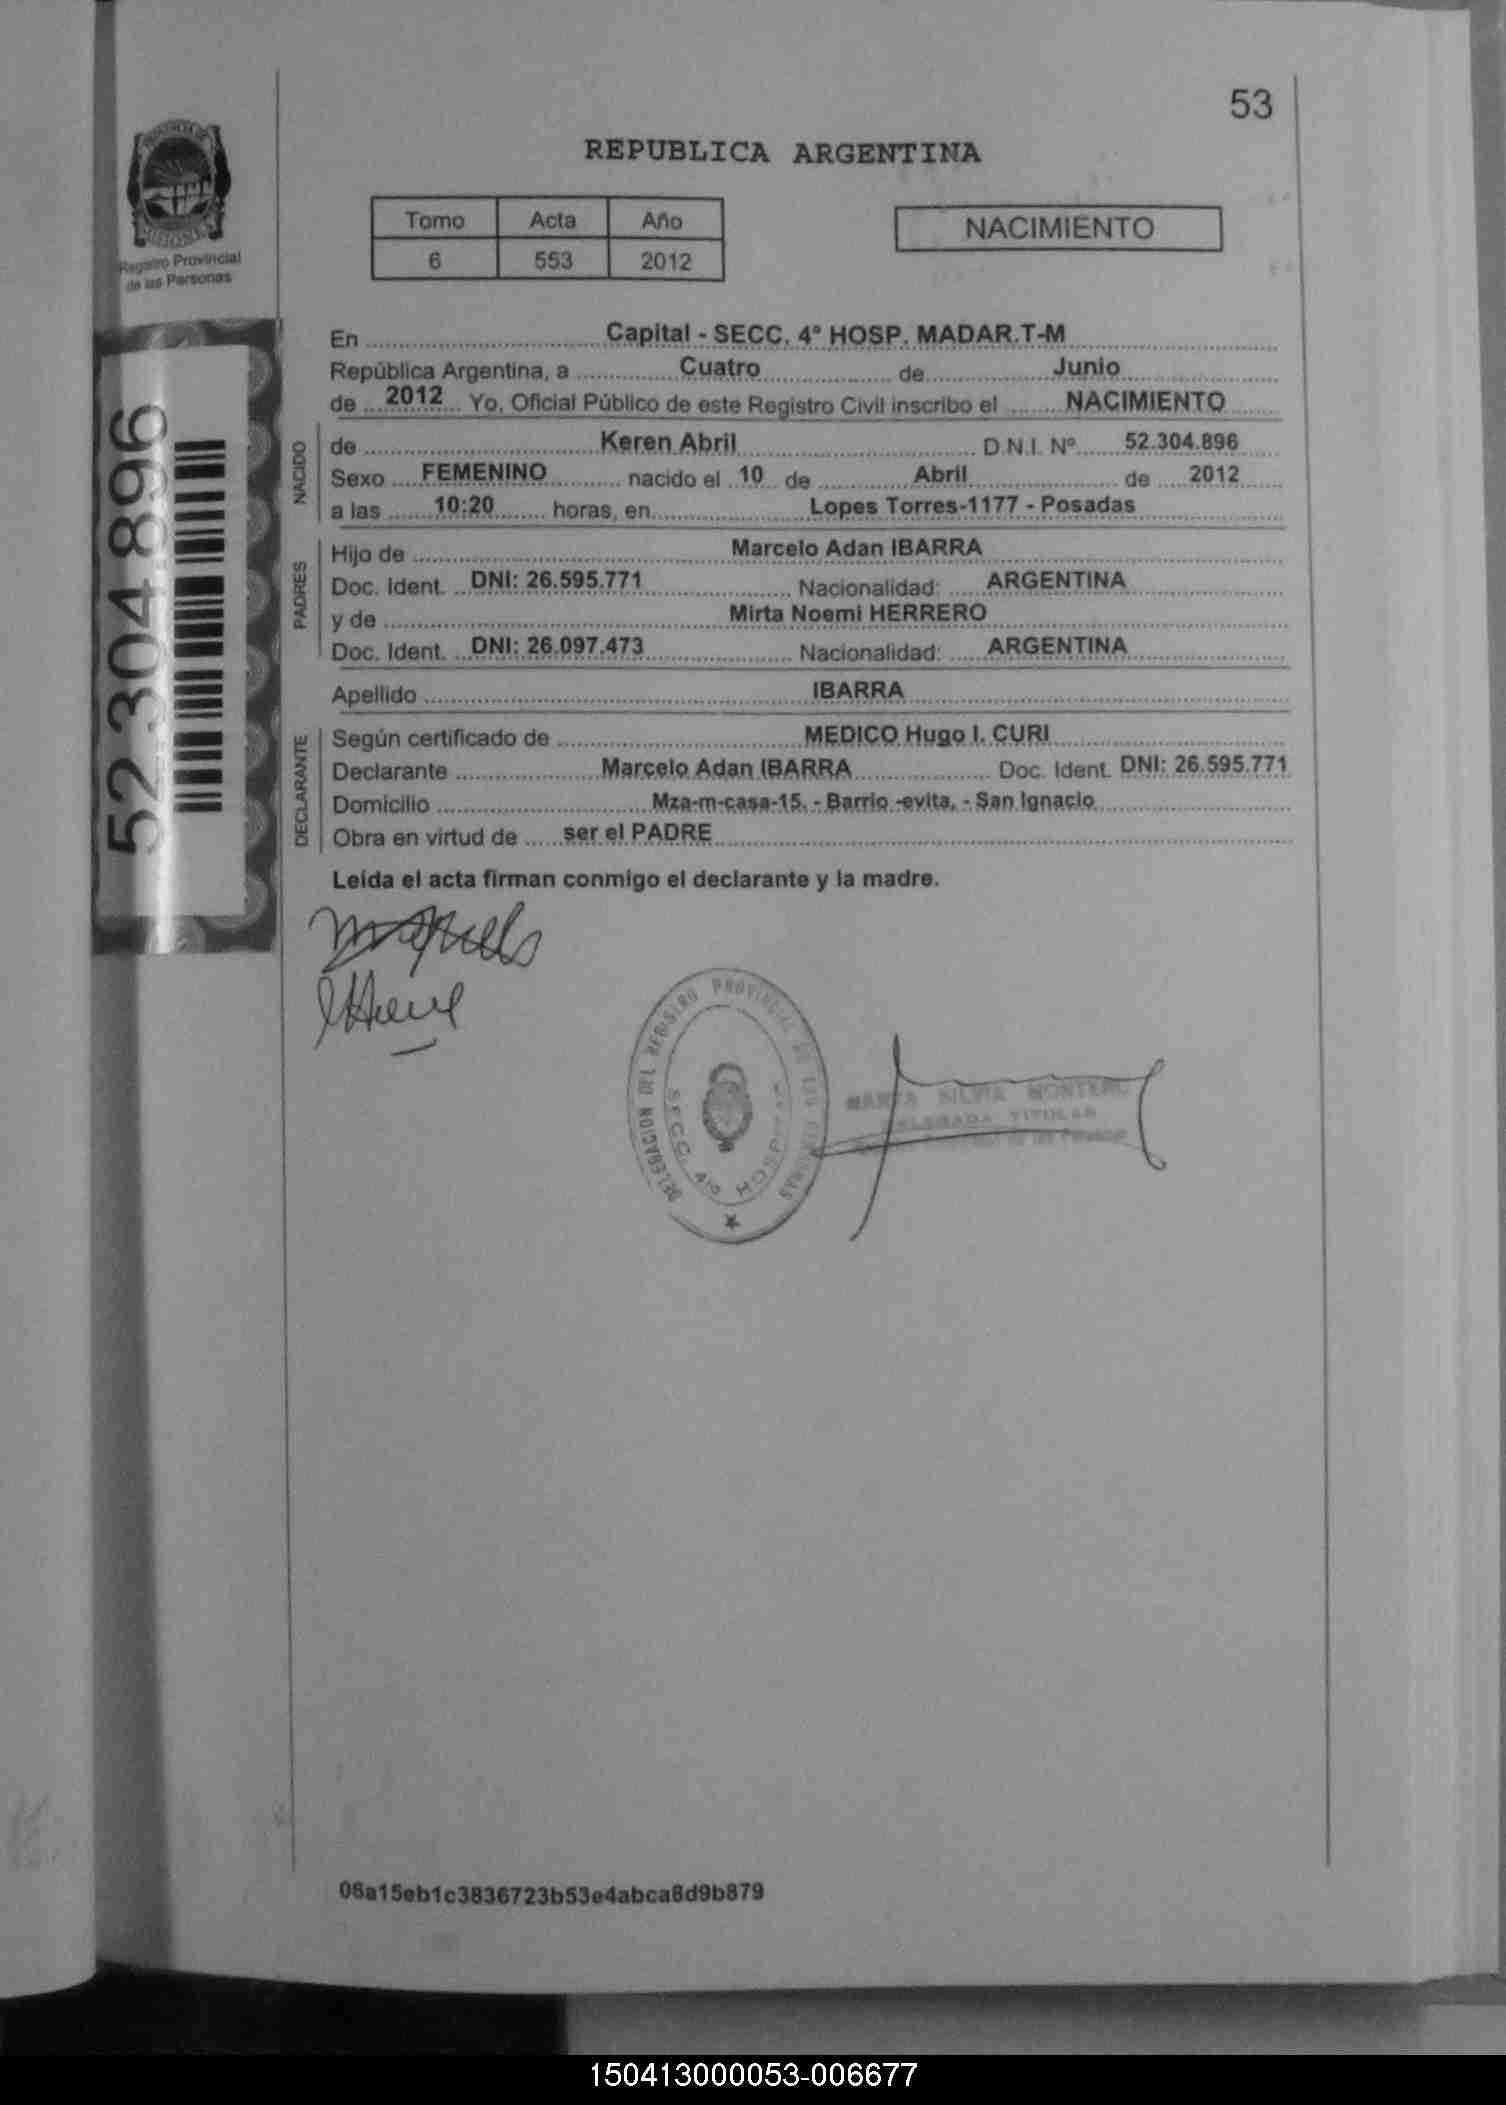 53
REPUBLICA ARGENTINA
PROVINCIA DE
MISIONES
Registro Provincial
de las Personas
Tomo Acta Año
6 553 2012
NACIMIENTO
52.304.896
En Capital - SECC. 4º HOSP. MADAR.T-M
República Argentina, a Cuatro de Junio
de 2012 Yo, Oficial Público de este Registro Civil inscribo el NACIMIENTO
NACIDO
de Keren Abril D.N.I. Nº 52.304.896
Sexo FEMENINO nacido el 10 de Abril de 2012
a las 10:20 horas, en Lopes Torres-1177 - Posadas
PADRES
Hijo de Marcelo Adan IBARRA
Doc. Ident. DNI: 26.595.771 Nacionalidad: ARGENTINA
y de Mirta Noemi HERRERO
Doc. Ident. DNI: 26.097.473 Nacionalidad: ARGENTINA
Apellido IBARRA
DECLARANTE
Según certificado de MEDICO Hugo I. CURI
Declarante Marcelo Adan IBARRA Doc. Ident. DNI: 26.595.771
Domicilio Mza-m-casa-15. - Barrio -evita. - San Ignacio
Obra en virtud de ser el PADRE
Leida el acta firman conmigo el declarante y la madre.
DELEGACION DEL REGISTRO PROVINCIAL DE LAS PERSONAS
SECC. 4ta HOSPITAL
MARTA SILVIA MONTERO
DELEGADA TITULAR
de las Personas
06a15eb1c3836723b53e4abca8d9b879
150413000053-006677